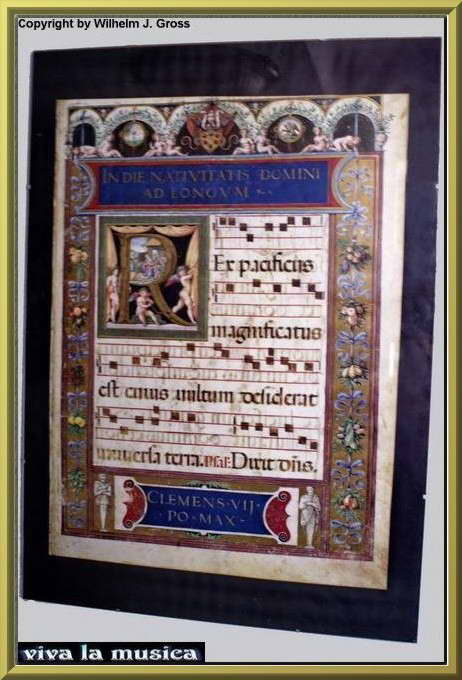 Copyright by Wilhelm J. Gross
IN DIE NATIVITATIS DOMINI
AD LONGVM
R
Ex pacificus
magnificatus
est cuius vultum desiderat
universa terra. Psal: Dixit dñs.
CLEMENS · VII ·
· PO · MAX ·
viva la musica